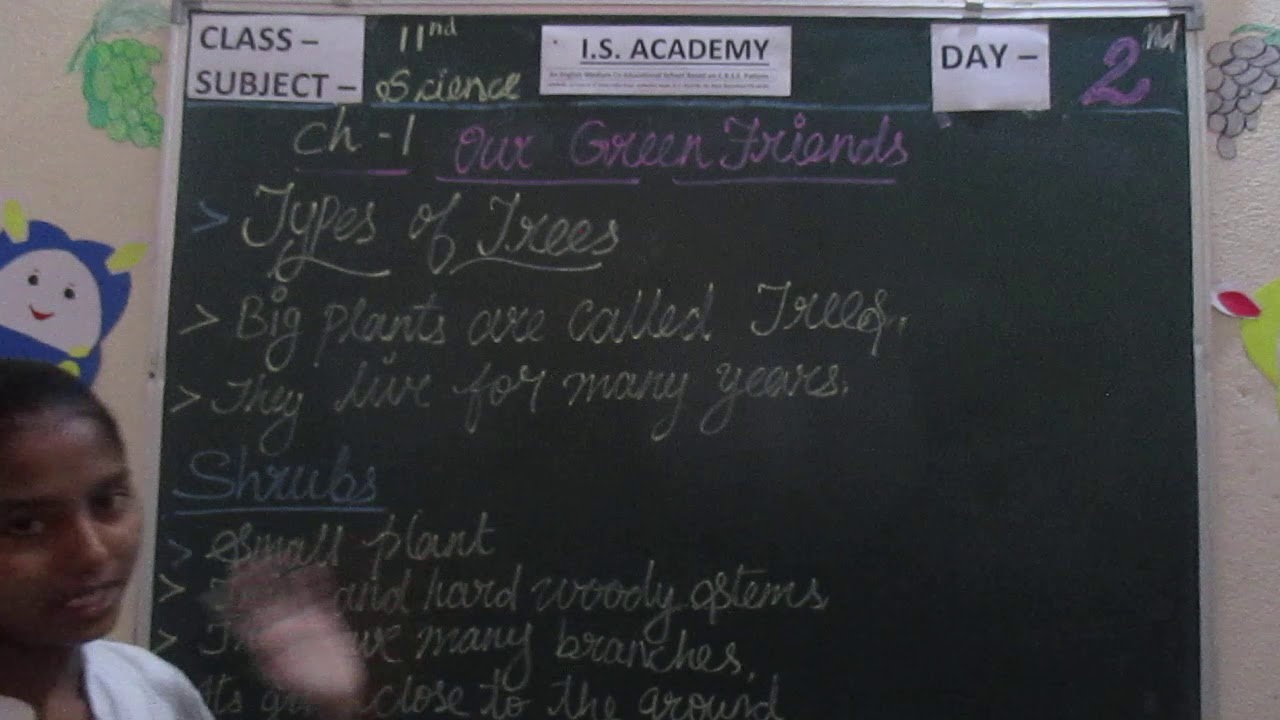 CLASS – 11nd
SUBJECT – Science
I.S. ACADEMY
An English Medium Co-Educational School Based on C.B.S.E. Pattern
DAY – 2nd
Ch - 1 Our Green Friends
> Types of Trees
> Big plants are called Trees.
> They live for many years.
Shrubs
> Small plant
> and hard woody stems
> many branches,
close to the ground